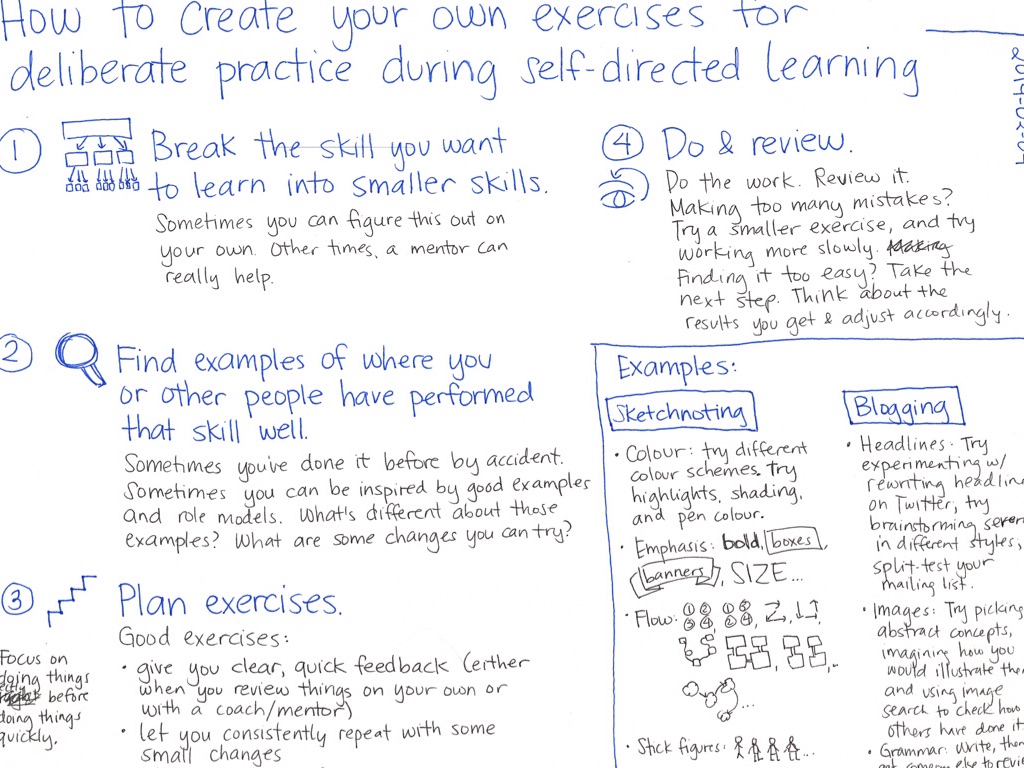 How to create your own exercises for
deliberate practice during self-directed learning
1
Break the skill you want
to learn into smaller skills.
Sometimes you can figure this out on
your own. Other times, a mentor can
really help.
2
Find examples of where you
or other people have performed
that skill well.
Sometimes you've done it before by accident.
Sometimes you can be inspired by good examples
and role models. What's different about those
examples? What are some changes you can try?
3
Plan exercises.
Good exercises:
• give you clear, quick feedback (either
when you review things on your own or
with a coach/mentor)
• let you consistently repeat with some
small changes
Focus on
doing things
before
doing things
quickly.
4
Do & review.
Do the work. Review it.
Making too many mistakes?
Try a smaller exercise, and try
working more slowly.
Finding it too easy? Take the
next step. Think about the
results you get & adjust accordingly.
Examples:
Sketchnoting
• Colour: try different
colour schemes. try
highlights, shading,
and pen colour.
• Emphasis: bold, boxes,
banners, SIZE...
• Flow: 1 2 3 4
• Stick figures:
Blogging
• Headlines: Try
experimenting w/
rewriting headlin
on Twitter, try
brainstorming sever
in different styles,
split-test your
mailing list.
• Images: Try picking
abstract concepts,
imagining how you
would illustrate them
and using image
search to check how
others have done it.
• Grammar: Write, then
someone else to revie